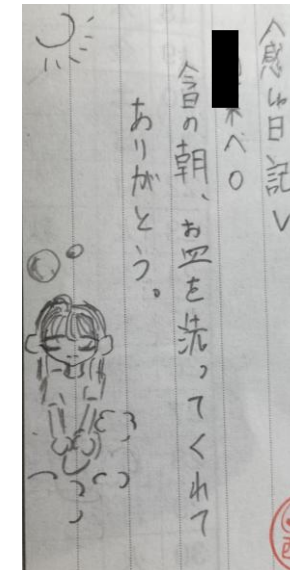 <感しゃ日記>
へ○
今日の朝、お皿を洗ってくれて
ありがとう。